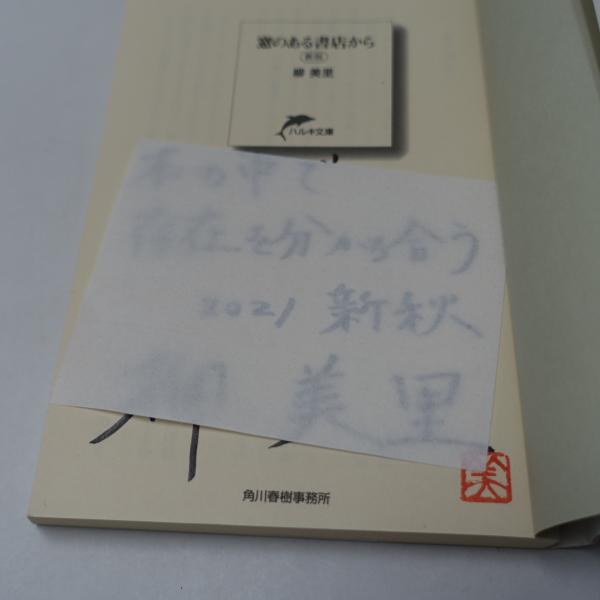 窓のある書店から
新版
柳 美里
ハルキ文庫
本の中で
存在を分かち合う
2021 新秋
柳 美里
角川春樹事務所
美